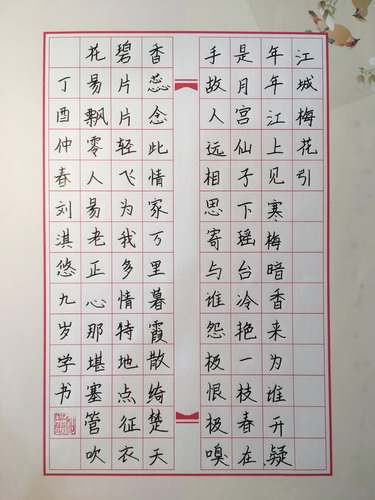 江城梅花引
年年江上见寒梅暗香来为谁开疑
是月宫仙子下瑶台冷艳一枝春在
手故人远相思寄与谁怨极恨极嗅
香蕊念此情家万里暮霞散绮楚天
碧片片轻飞为我多情特地点征衣
花易飘零人易老正心那堪塞管吹
丁酉仲春刘淇悠九岁学书